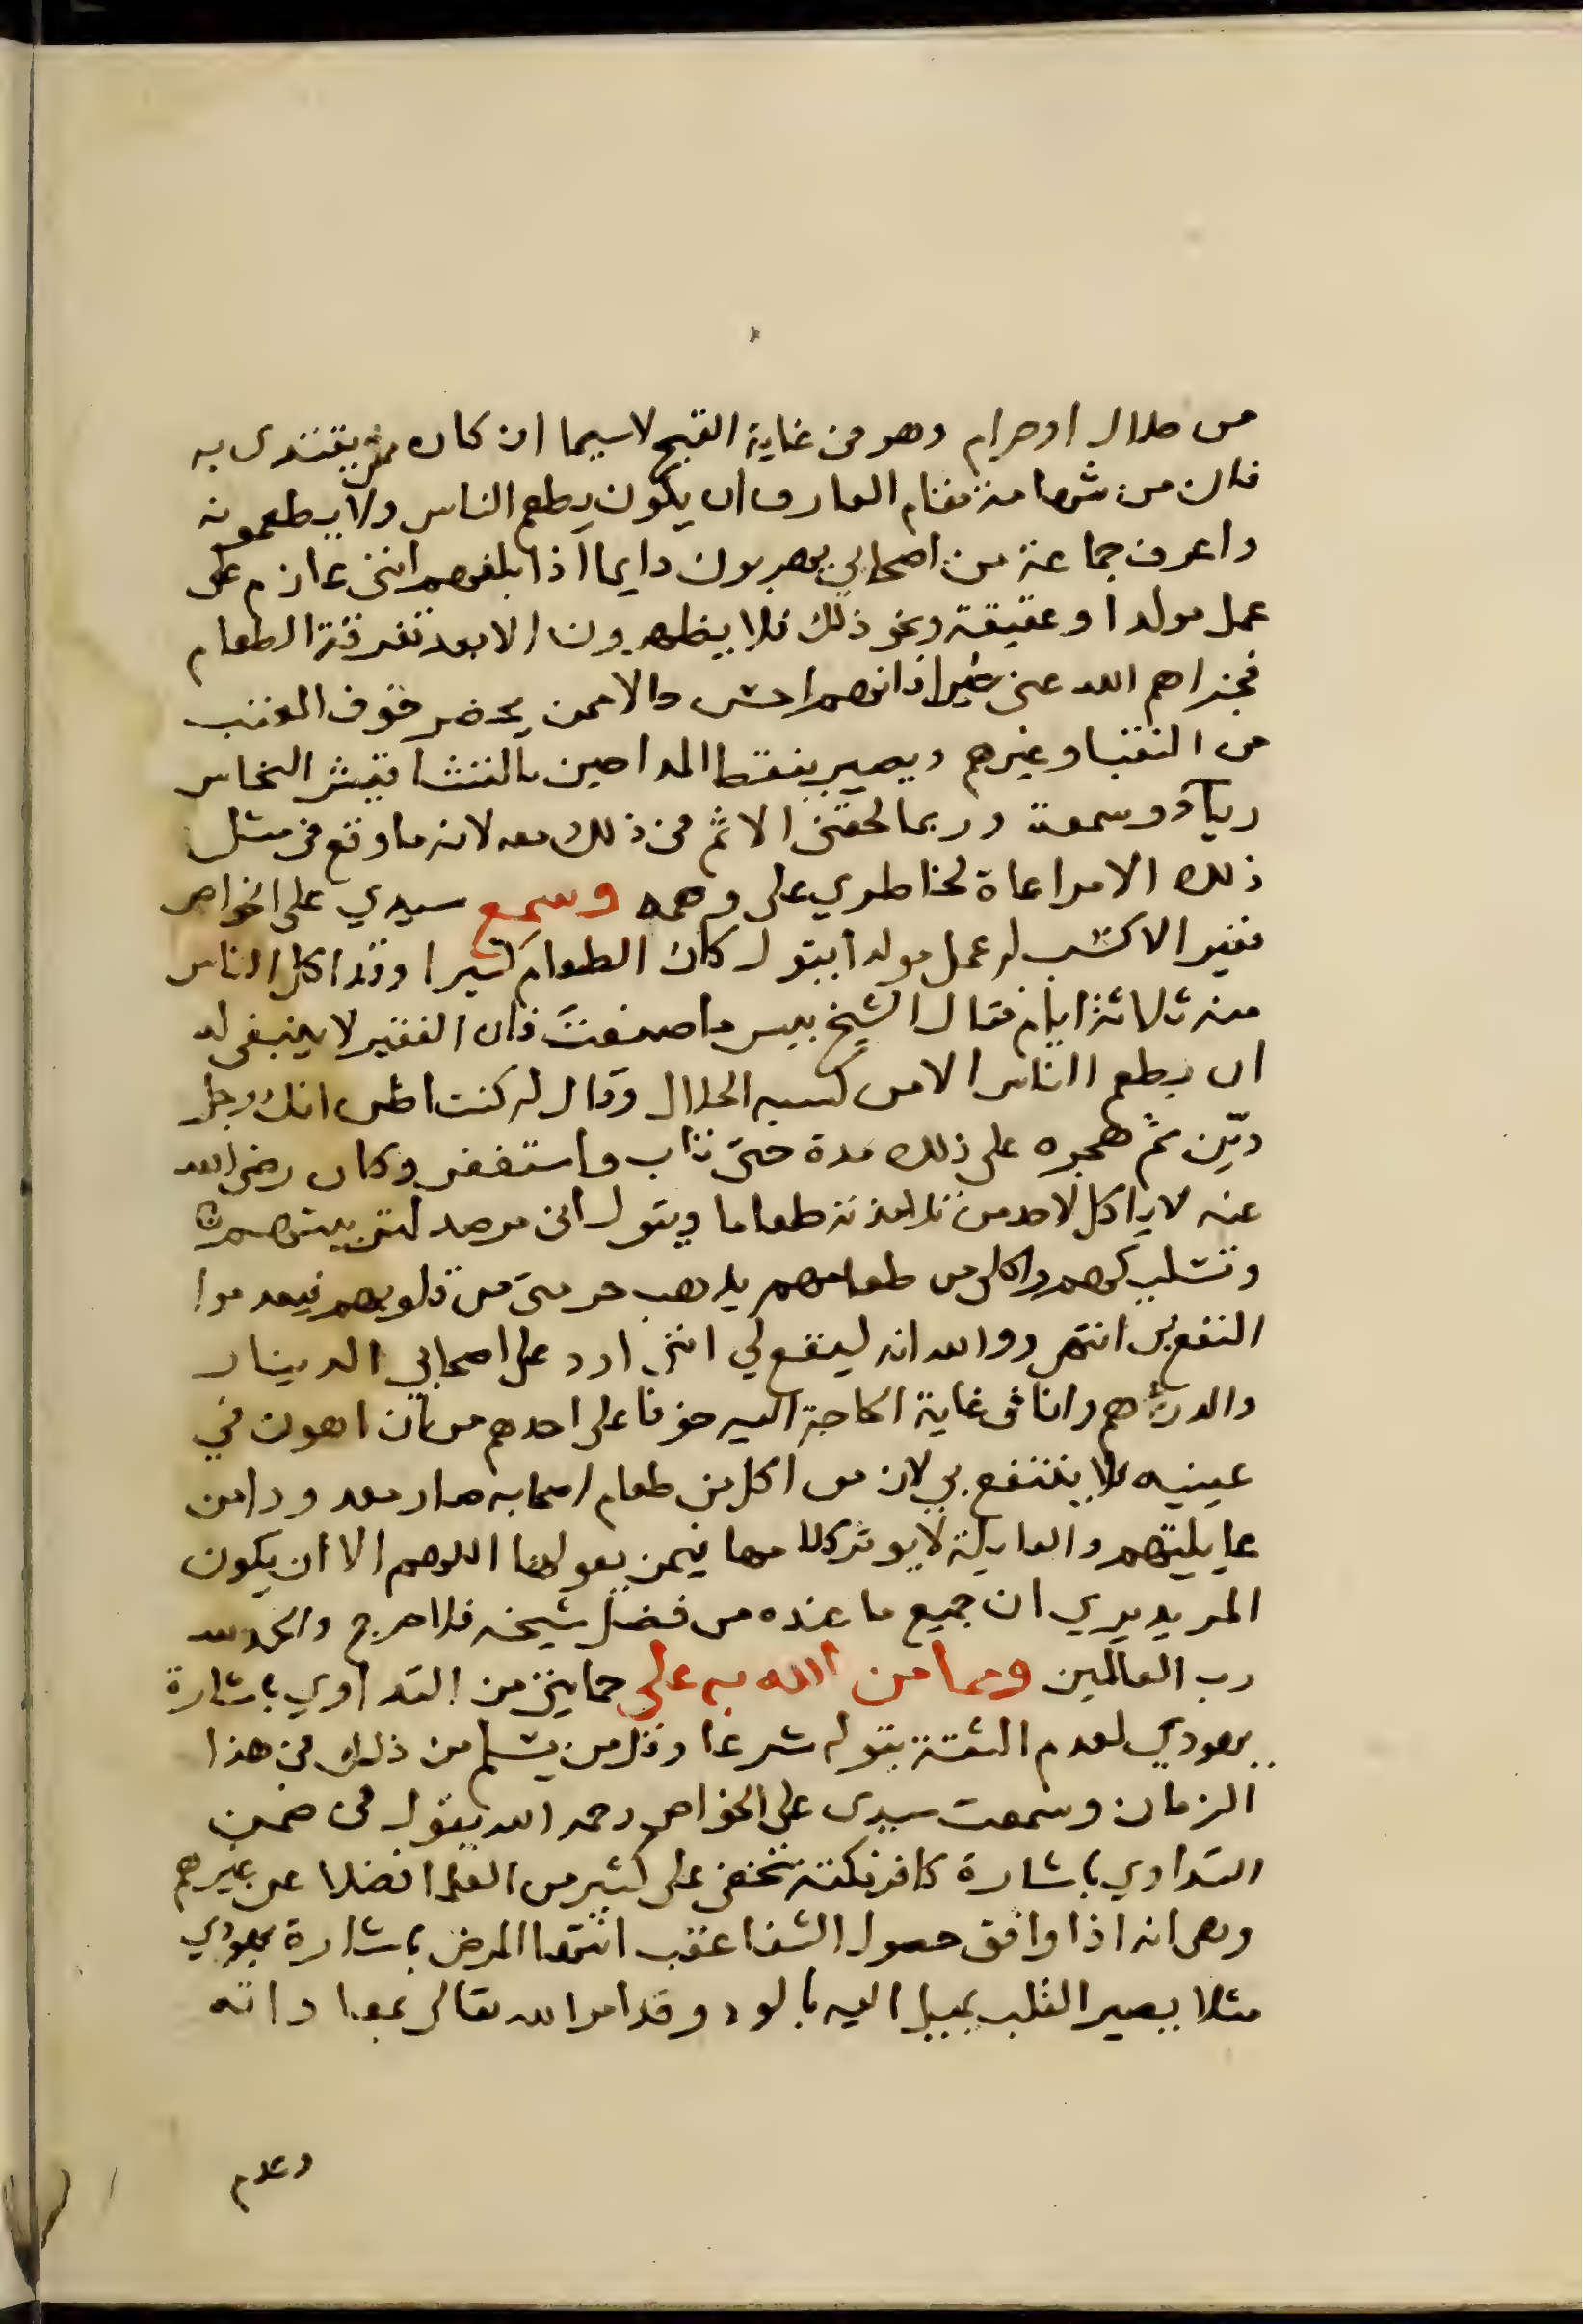 من حلال او حرام وهو فى غاية القبح لاسيما ان كان ممن يقتدى به
فان من شهامة مقام العارف ان يكون يطعم الناس ولا يطعمونه
واعرف جماعة من اصحابي يهربون دايما اذا بلغهم اننى عازم على
عمل مولد او عقيقة ونحو ذلك فلا يظهرون الا بعد تفرقة الطعام
فجزاهم الله عنى خيرا فانهم احسن حالا ممن يحضر خوف العتب
من النقبا وغيرهم ويصير ينقط المداحين بالفتشا فيش النحاس
ريآء وسمعة وربما لحقنى الاثم فى ذلك معه لانه ما وقع فى مثل
ذلك الا مراعاة لخاطري على وهمه وسمع سيدي على الخواص
فقيرا لا كسب له عمل مولدا يقول كان الطعام كثيرا وقد اكل الناس
منه ثلاثة ايام فقال الشيخ بيس ما صنعت فان الفقير لا ينبغى له
ان يطعم الناس الا من كسبه الحلال وقال له كنت اظن انك رجل
ديّن ثم هجره على ذلك مدة حتى تاب واستغفر وكان رضى الله
عنه لا ياكل لاحد من تلامذته طعاما ويقول انى مرصد لتربيتهم
وتسليكهم واكلى من طعامهم يذهب حرمتى من قلوبهم فيعدموا
النفع بى انتهى ووالله انه ليقع لي اننى ارد على اصحابي الدينار
والدرهم وانا فى غاية الحاجة اليه خوفا على احدهم من ان اهون في
عينيه فلا ينتفع بي لان من اكل من طعام اصحابه صار معدودا من
عايلتهم والعايلة لا يوثر كلامها فيمن يعولها اللهم الا ان يكون
المريد يري ان جميع ما عنده من فضل شيخه فلا حرج والحمد لله
رب العالمين ومما من الله به على حمايتى من التداوي باشارة
يهودي لعدم الثقة بقوله شرعا وقل من يسلم من ذلك فى هذا
الزمان وسمعت سيدى على الخواص رحمه الله يقول فى ضمن
التداوي باشارة كافر نكتة تخفى على كثير من العلما فضلا عن غيرهم
وهى انه اذا وافق حصول الشفا عقب انتها المرض باشارة يهودي
مثلا يصير القلب يميل اليه بالود وقد امر الله تعالى بمعاداته
وعدم